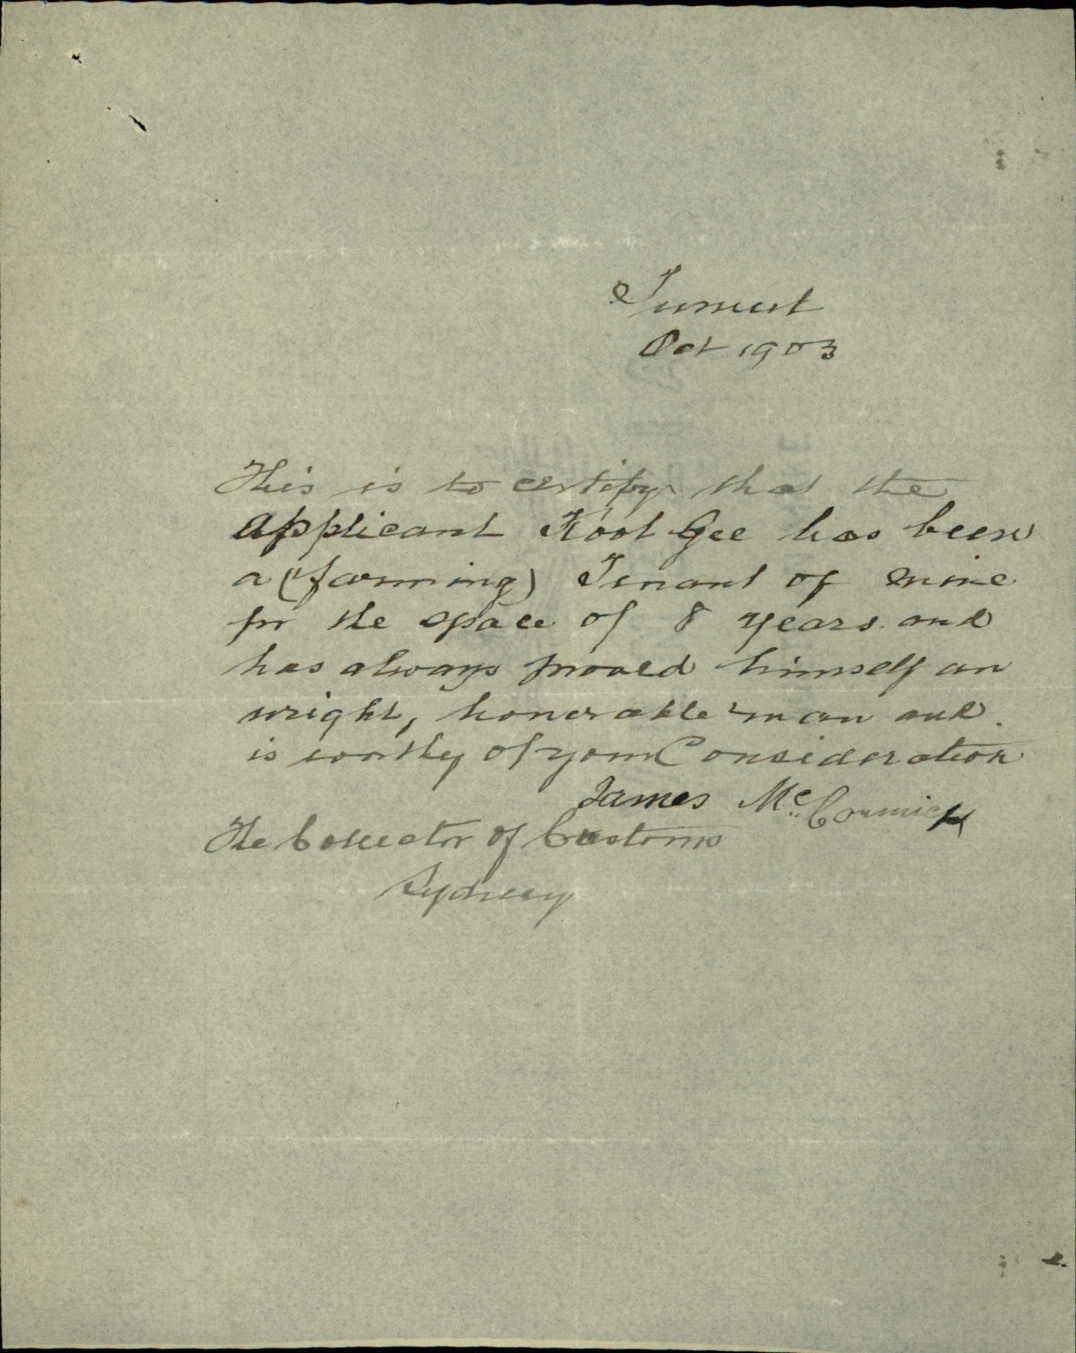 Tumut
Oct 1903
This is to certify that the
applicant Koot Gee has been
a (farming) Tenant of mine
for the space of 8 years and
has always proved himself an
upright, honorable man and
is worthy of your Consideration
James McCormick
The Collector of Customs
Sydney